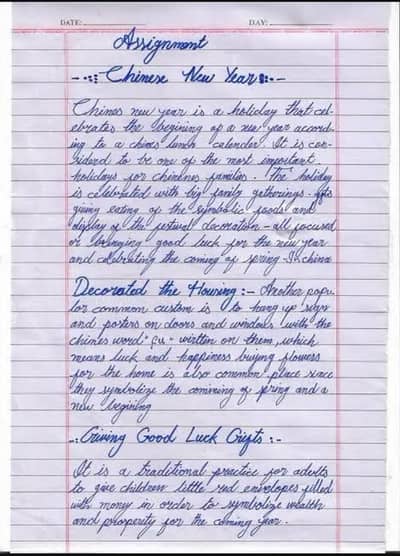 DATE: DAY:
Assignment
-.:: Chinese New Year ::.-
Chines new year is a holiday that cel-
ebrates the begining of a new year accord-
ing to a chines lunch calender. It is con-
sidend to be one of the most important
holidays for chinelnes families. The holiday
is celebrated with big family gatherings. gifts
giving eating of the symbolic foods and
display of the festival decoration - all focused
or bringing good luck for the new year
and celebrating the coming of spring. In china
Decorated the Housing :- Another popu-
lor common custom is to hang up sign
and posters on doors and windows with the
chines word " fu " written on them, which
means luck and happiness buying flowers
for the home is also common place since
they symbolize the comining of spring and a
new begining
-: Giving Good Luck Gifts :-
It is a traditional practice for adults
to give children little red envelopes filled
with money in order to symbolize wealth
and prosperity for the coming year.